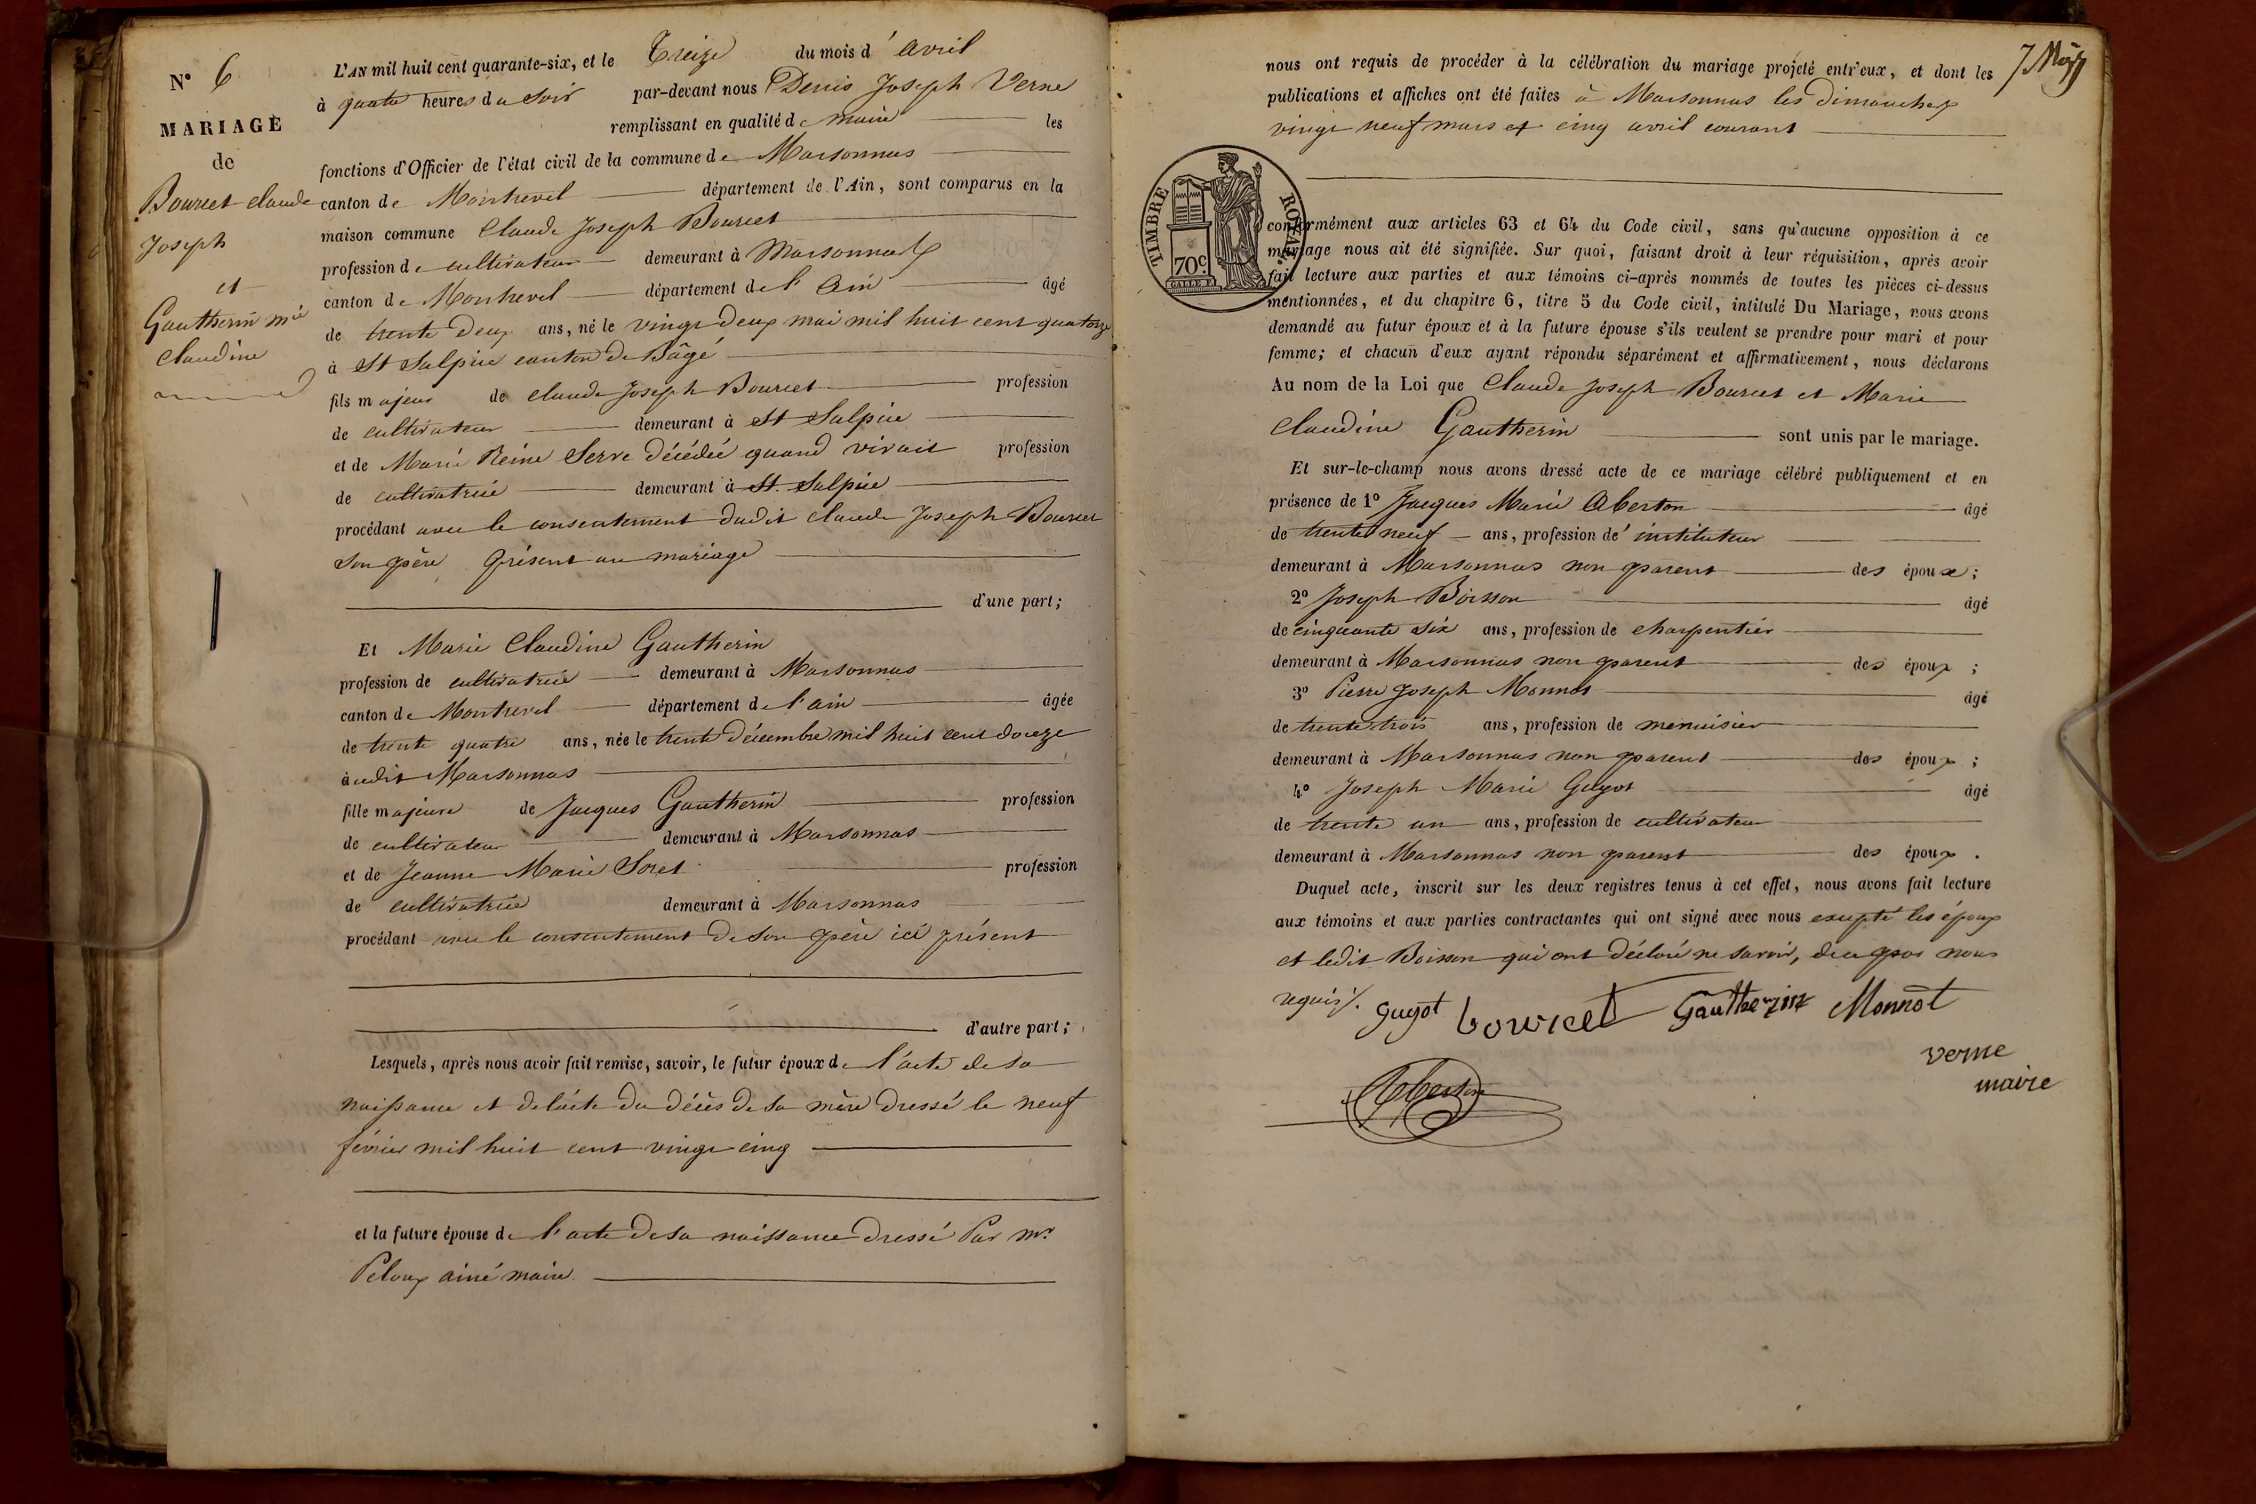 N° 6
MARIAGE
de
Bourcet Claude
Joseph
et
Gautherin Mie
Claudine
L'AN mil huit cent quarante-six, et le Treize du mois d'avril
à quatre heures du soir par-devant nous Denis Joseph Verne
remplissant en qualité de maire les
fonctions d'Officier de l'état civil de la commune de Marsonnas
canton de Montrevel département de l'Ain, sont comparus en la
maison commune Claude Joseph Bourcet
profession de cultivateur demeurant à Marsonnas
canton de Montrevel département de l'Ain âgé
de trente deux ans, né le vingt deux mai mil huit cent quatorze
à St Sulpice canton de Bâgé
fils majeur de Claude Joseph Bourcet profession
de cultivateur demeurant à St Sulpice
et de Marie Reine Serve décédée quand vivait profession
de cultivatrice demeurant à St. Sulpice
procédant avec le consentement dudit Claude Joseph Bourcet
son père présent au mariage
d'une part;
Et Marie Claudine Gautherin
profession de cultivatrice demeurant à Marsonnas
canton de Montrevel département de l'ain âgée
de trente quatre ans, née le trente décembre mil huit cent douze
audit Marsonnas
fille majeure de Jacques Gautherin profession
de cultivateur demeurant à Marsonnas
et de Jeanne Marie Soret profession
de cultivatrice demeurant à Marsonnas
procédant avec le consentement de son père ici présent
d'autre part;
Lesquels, après nous avoir fait remise, savoir, le futur époux de l'acte de sa
naissance et de l'acte du décès de sa mère dressé le neuf
février mil huit cent vingt cinq
et la future épouse de l'acte de sa naissance dressé Par Mr.
Peloux ainé maire
7
nous ont requis de procéder à la célébration du mariage projeté entr'eux, et dont les
publications et affiches ont été faites à Marsonnas les dimanches
vingt neuf mars et cinq avril courant
TIMBRE ROYAL
70c.
conformément aux articles 63 et 64 du Code civil, sans qu'aucune opposition à ce
mariage nous ait été signifiée. Sur quoi, faisant droit à leur réquisition, après avoir
fait lecture aux parties et aux témoins ci-après nommés de toutes les pièces ci-dessus
mentionnées, et du chapitre 6, titre 5 du Code civil, intitulé Du Mariage, nous avons
demandé au futur époux et à la future épouse s'ils veulent se prendre pour mari et pour
femme; et chacun d'eux ayant répondu séparément et affirmativement, nous déclarons
Au nom de la Loi que Claude Joseph Bourcet et Marie
Claudine Gautherin sont unis par le mariage.
Et sur-le-champ nous avons dressé acte de ce mariage célébré publiquement et en
présence de 1° Jacques Marie Aberton âgé
de trente neuf ans, profession d'instituteur
demeurant à Marsonnas non parent des époux;
2° Joseph Boisson âgé
de cinquante six ans, profession de charpentier
demeurant à Marsonnas non parent des époux;
3° Pierre Joseph Monnot âgé
de trente trois ans, profession de menuisier
demeurant à Marsonnas non parent des époux;
4° Joseph Marie Guyot âgé
de trente un ans, profession de cultivateur
demeurant à Marsonnas non parent des époux.
Duquel acte, inscrit sur les deux registres tenus à cet effet, nous avons fait lecture
aux témoins et aux parties contractantes qui ont signé avec nous excepté les époux
et ledit Boisson qui ont déclaré ne savoir, de ce par nous
requis.
Guyot bouricet Gautherin Monnot
Verne
maire
Aberton